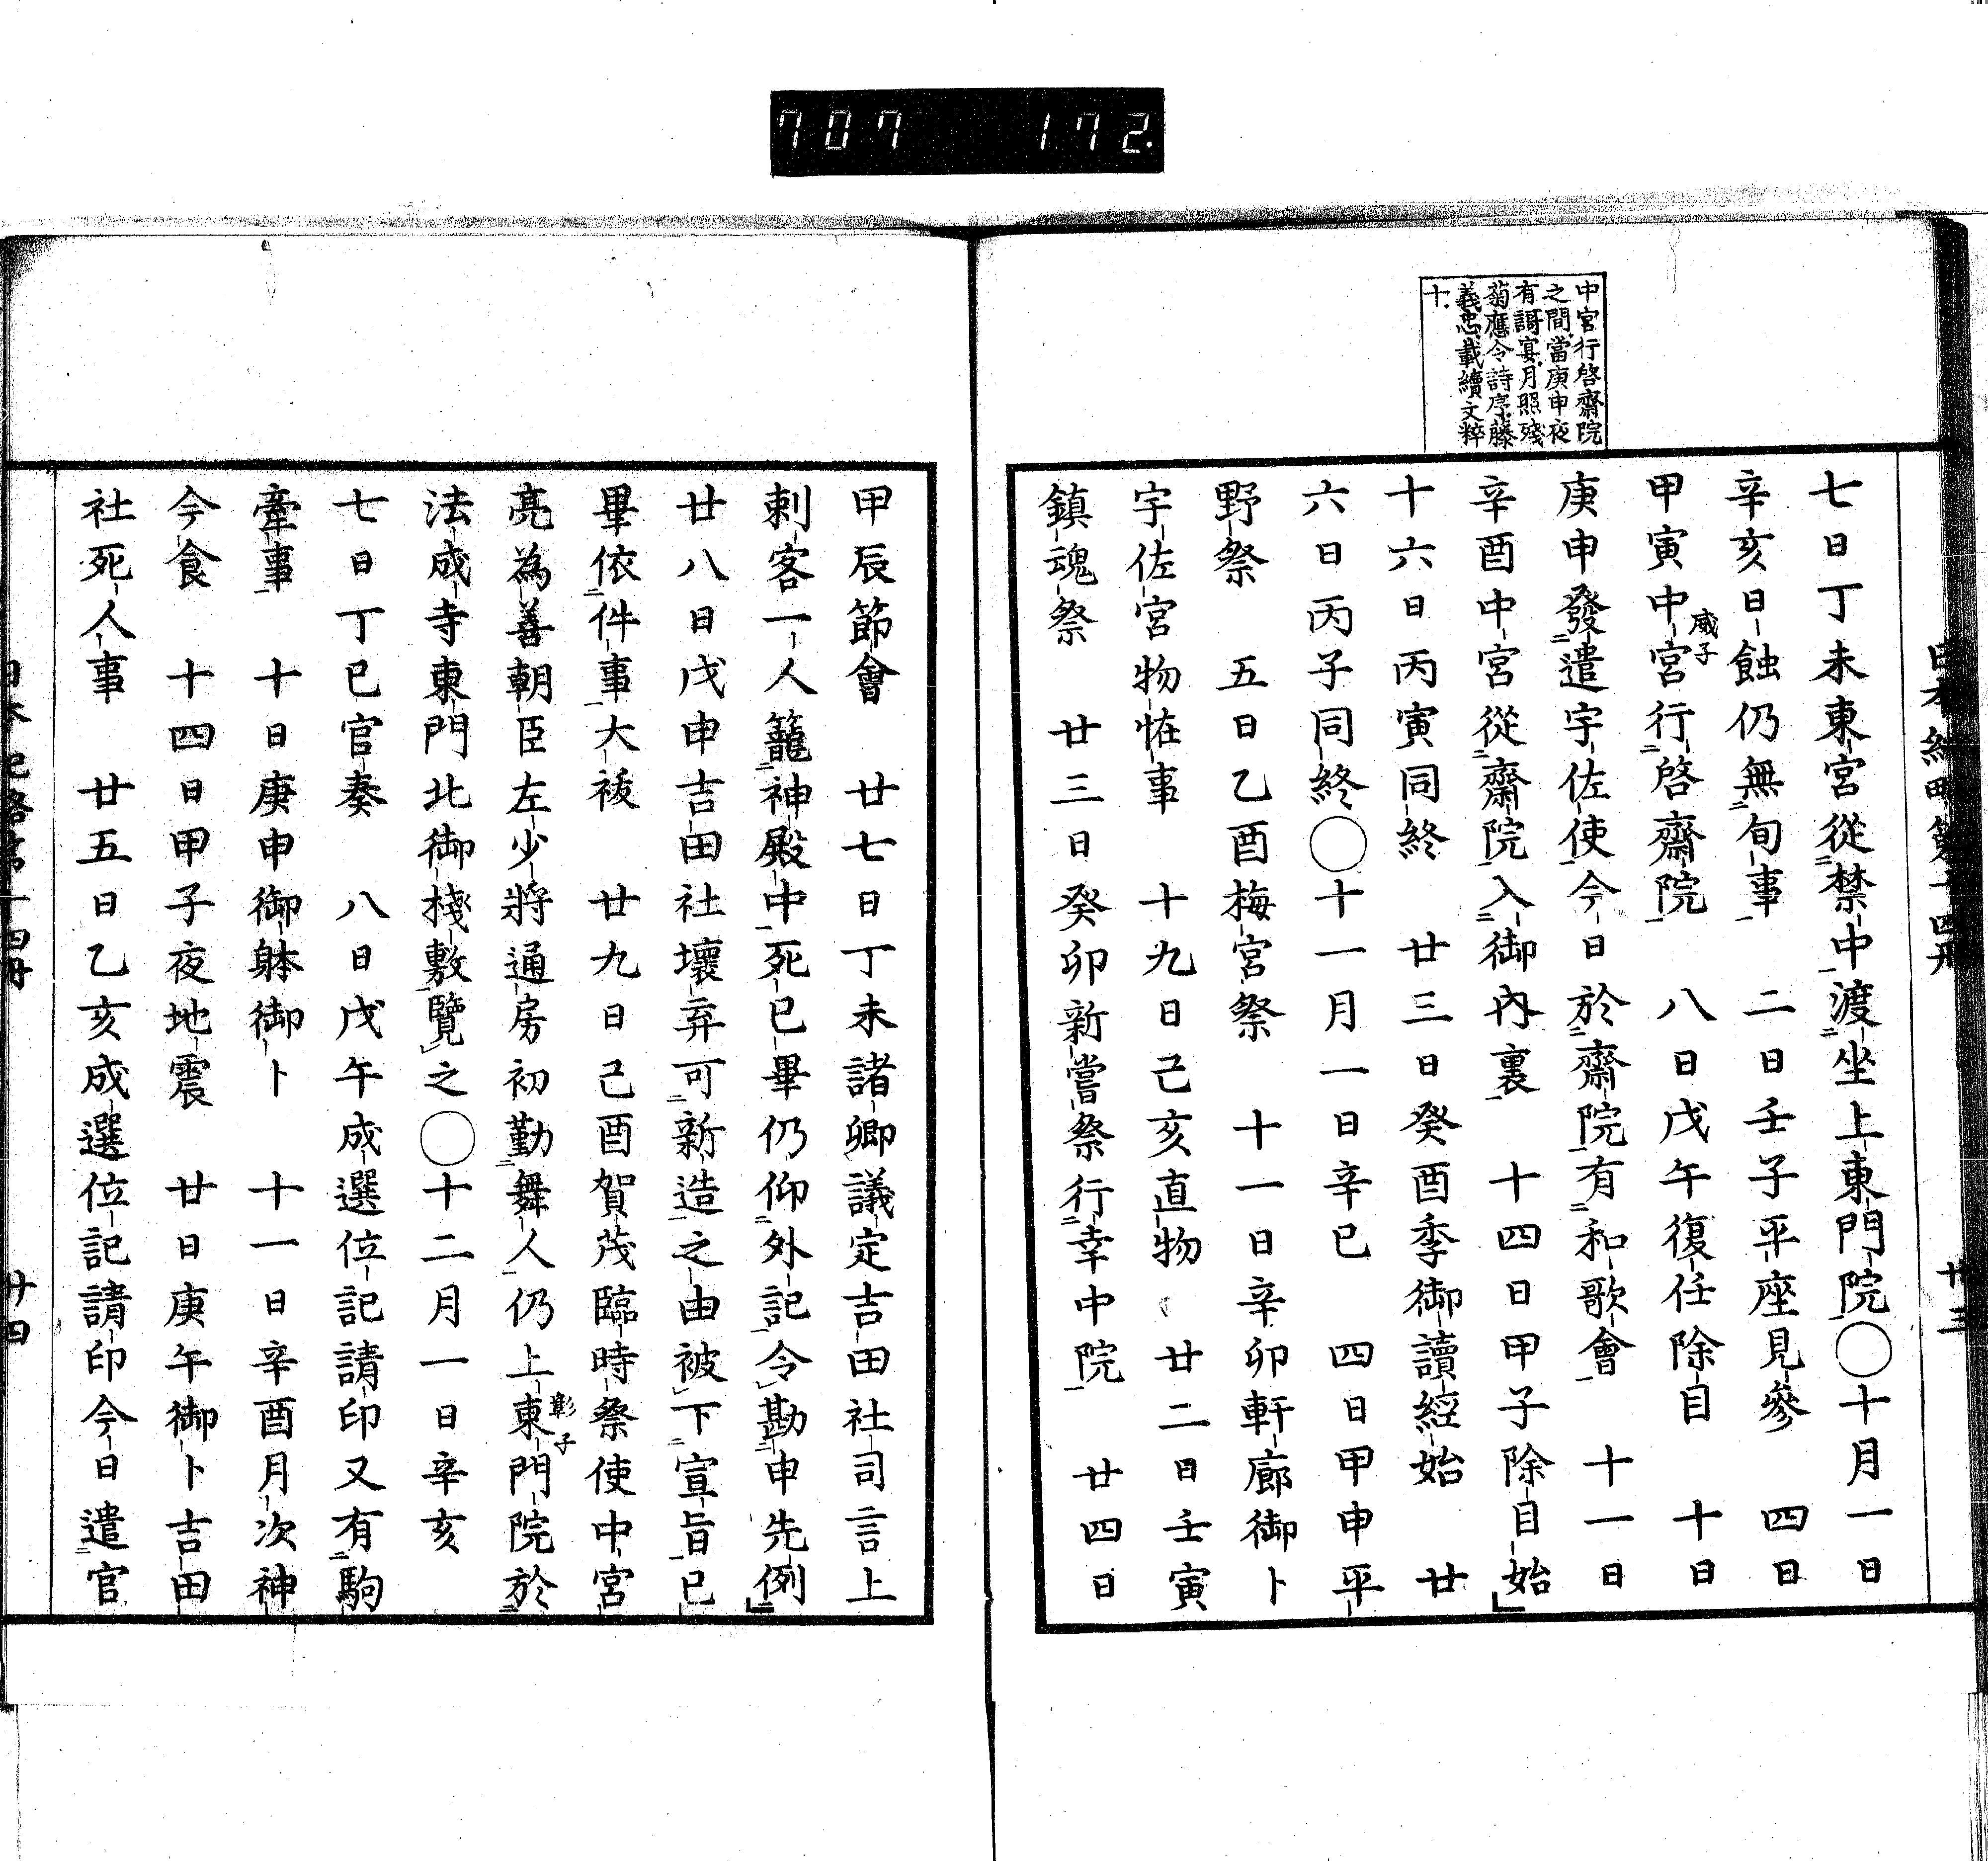 707 172.
中宮行啓齋院
之間當庚申夜
有謌宴月照殘
菊應令詩序藤
義忠載續文粹
十
廿三
七日丁未東宮從禁中渡坐上東門院〇十月一日
辛亥日蝕仍無旬事 二日壬子平座見參 四日
甲寅中宮行啓齋院 八日戊午復任除目 十日
威子
庚申發遣宇佐使今日於齋院有和歌會 十一日
辛酉中宮從齋院入御內裏 十四日甲子除目始
十六日丙寅同終 廿三日癸酉季御讀經始 廿
六日丙子同終〇十一月一日辛巳 四日甲申平
野祭 五日乙酉梅宮祭 十一日辛卯軒廊御卜
宇佐宮物恠事 十九日己亥直物 廿二日壬寅
鎮魂祭 廿三日癸卯新嘗祭行幸中院 廿四日
甲辰節會 廿七日丁未諸卿議定吉田社司言上
刺客一人籠神殿中死已畢仍仰外記令勘申先例
廿八日戊申吉田社壞弃可新造之由被下宣旨已
畢依件事大祓 廿九日己酉賀茂臨時祭使中宮
亮為善朝臣左少將通房初勤舞人仍上東門院於
彰子
法成寺東門北御棧敷覽之〇十二月一日辛亥
七日丁巳官奏 八日戊午成選位記請印又有駒
牽事 十日庚申御躰御卜 十一日辛酉月次神
今食 十四日甲子夜地震 廿日庚午御卜吉田
社死人事 廿五日乙亥成選位記請印今日遣官
廿四